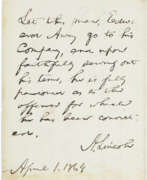 Let this man, 
over Avery go to his
Company, and upon
faithfully serving out
his time, he is fully
pardoned as to the
offense for which
he has been convict-
ed.
A. Lincoln
April 1. 1864